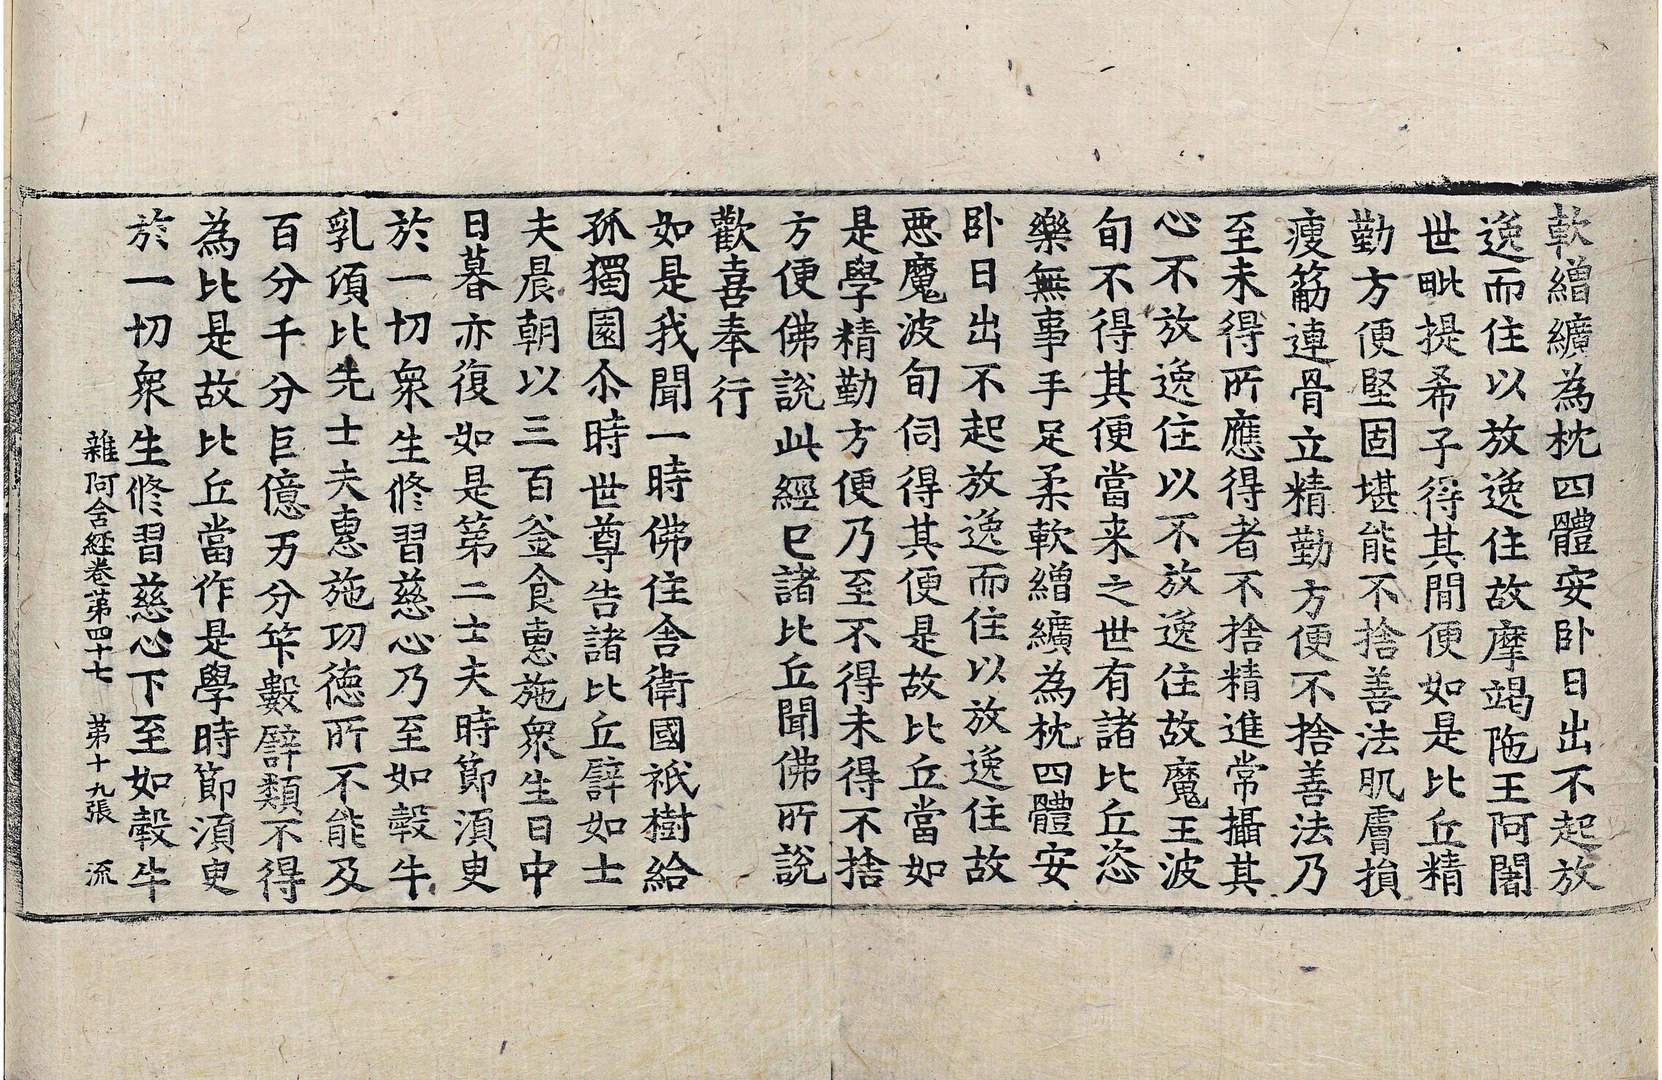 軟繒纊為枕四體安卧日出不起放
逸而住以放逸住故摩竭陁王阿闍
世毗提希子得其閒便如是比丘精
勤方便堅固堪能不捨善法肌膚損
瘦筋連骨立精勤方便不捨善法乃
至未得所應得者不捨精進常攝其
心不放逸住以不放逸住故魔王波
旬不得其便當来之世有諸比丘恣
樂無事手足柔軟繒纊為枕四體安
卧日出不起放逸而住以放逸住故
惡魔波旬伺得其便是故比丘當如
是學精勤方便乃至不得未得不捨
方便佛說此經已諸比丘聞佛所說
歡喜奉行
如是我聞一時佛住舍衛國祇樹給
孤獨園尒時世尊告諸比丘譬如士
夫晨朝以三百釜食惠施衆生日中
日暮亦復如是第二士夫時節湏臾
於一切衆生修習慈心乃至如𤚲牛
乳頃比先士夫惠施功德所不能及
百分千分巨億万分筭數譬類不得
為比是故比丘當作是學時節湏臾
於一切衆生修習慈心下至如𤚲牛
雜阿含経卷苐四十七 苐十九張 流